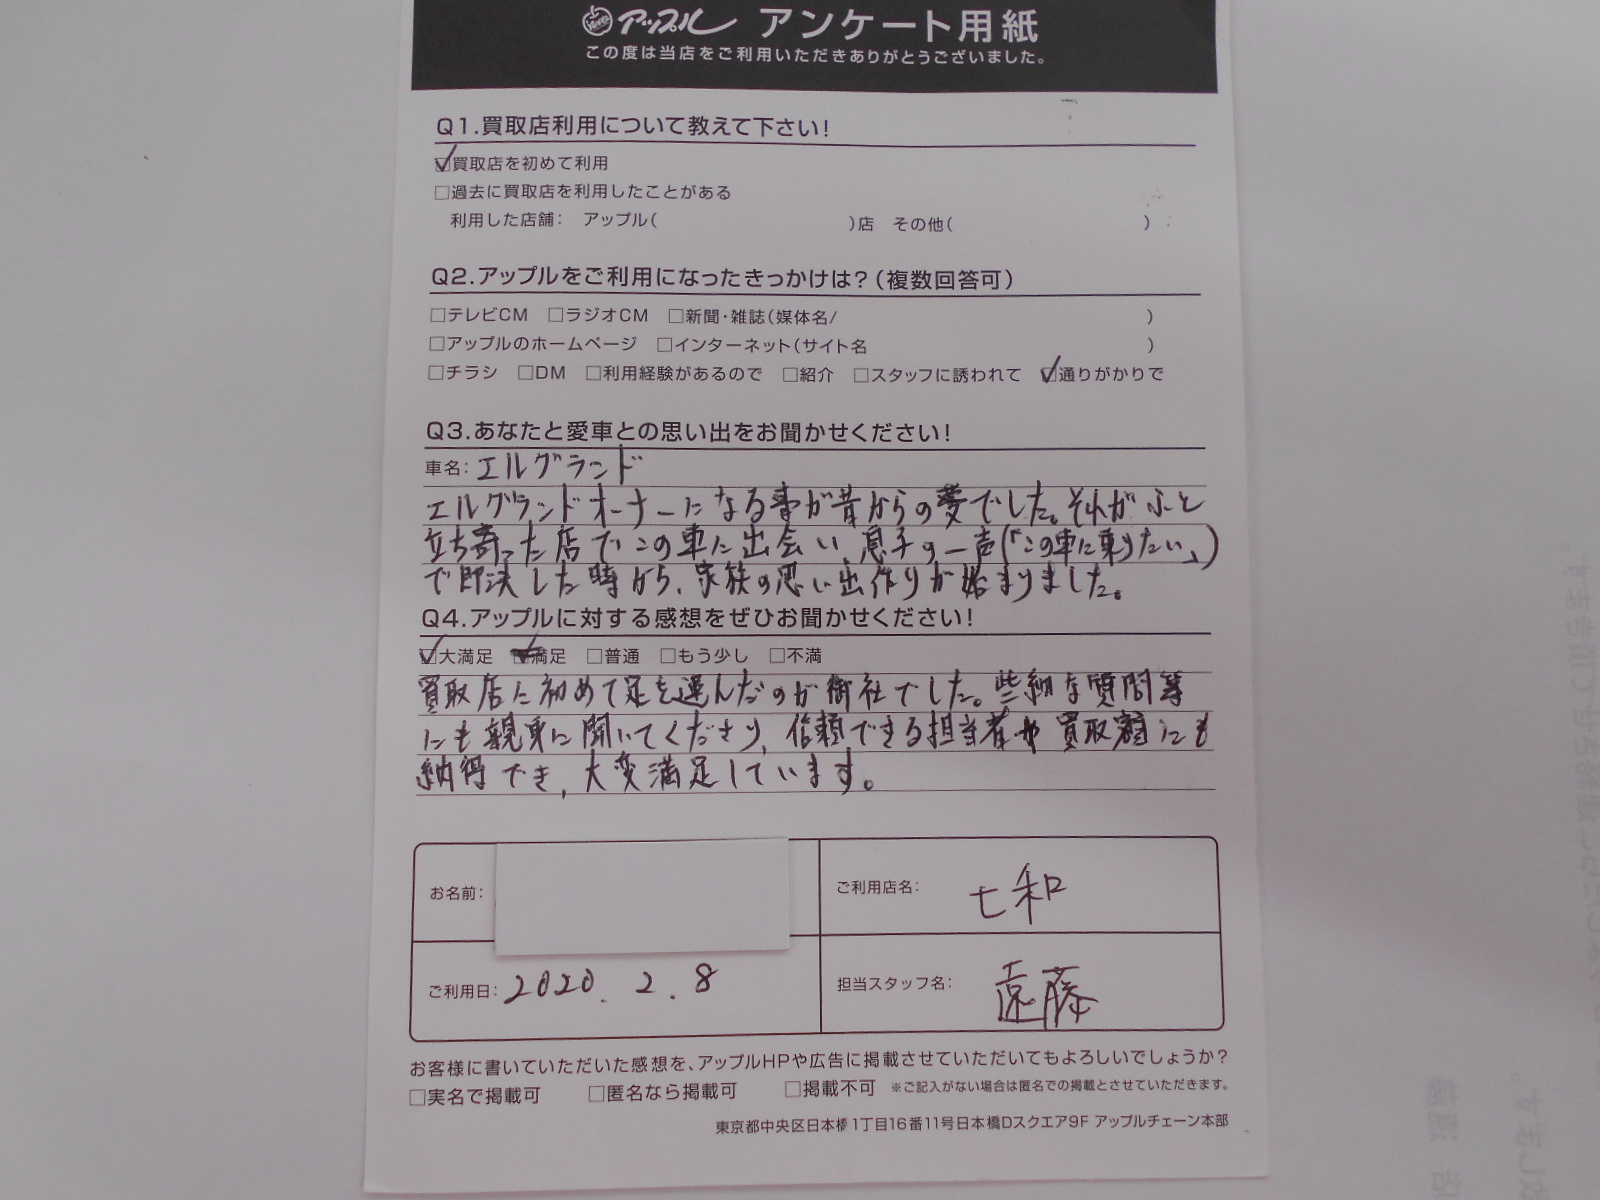 アップル アンケート用紙
この度は当店をご利用いただきありがとうございました。
Q1.買取店利用について教えて下さい!
☑買取店を初めて利用
□過去に買取店を利用したことがある
利用した店舗: アップル( )店 その他( )
Q2.アップルをご利用になったきっかけは?(複数回答可)
□テレビCM □ラジオCM □新聞・雑誌(媒体名/ )
□アップルのホームページ □インターネット(サイト名 )
□チラシ □DM □利用経験があるので □紹介 □スタッフに誘われて ☑通りがかりで
Q3.あなたと愛車との思い出をお聞かせください!
車名: エルグランド
エルグランドオーナーになる事が昔からの夢でした。それがふと
立ち寄った店でこの車に出会い、息子の一声(「この車に乗りたい」)
で即決した時から、家族の思い出作りが始まりました。
Q4.アップルに対する感想をぜひお聞かせください!
☑大満足 満足 □普通 □もう少し □不満
買取店に初めて足を運んだのが御社でした。些細な質問等
にも親身に聞いてくださり、信頼できる担当者や買取額にも
納得でき、大変満足しています。
お名前:
ご利用店名: 七和
ご利用日: 2020.2.8
担当スタッフ名: 遠藤
お客様に書いていただいた感想を、アップルHPや広告に掲載させていただいてもよろしいでしょうか?
□実名で掲載可 □匿名なら掲載可 □掲載不可 ※ご記入がない場合は匿名での掲載とさせていただきます。
東京都中央区日本橋1丁目16番11号日本橋Dスクエア9F アップルチェーン本部